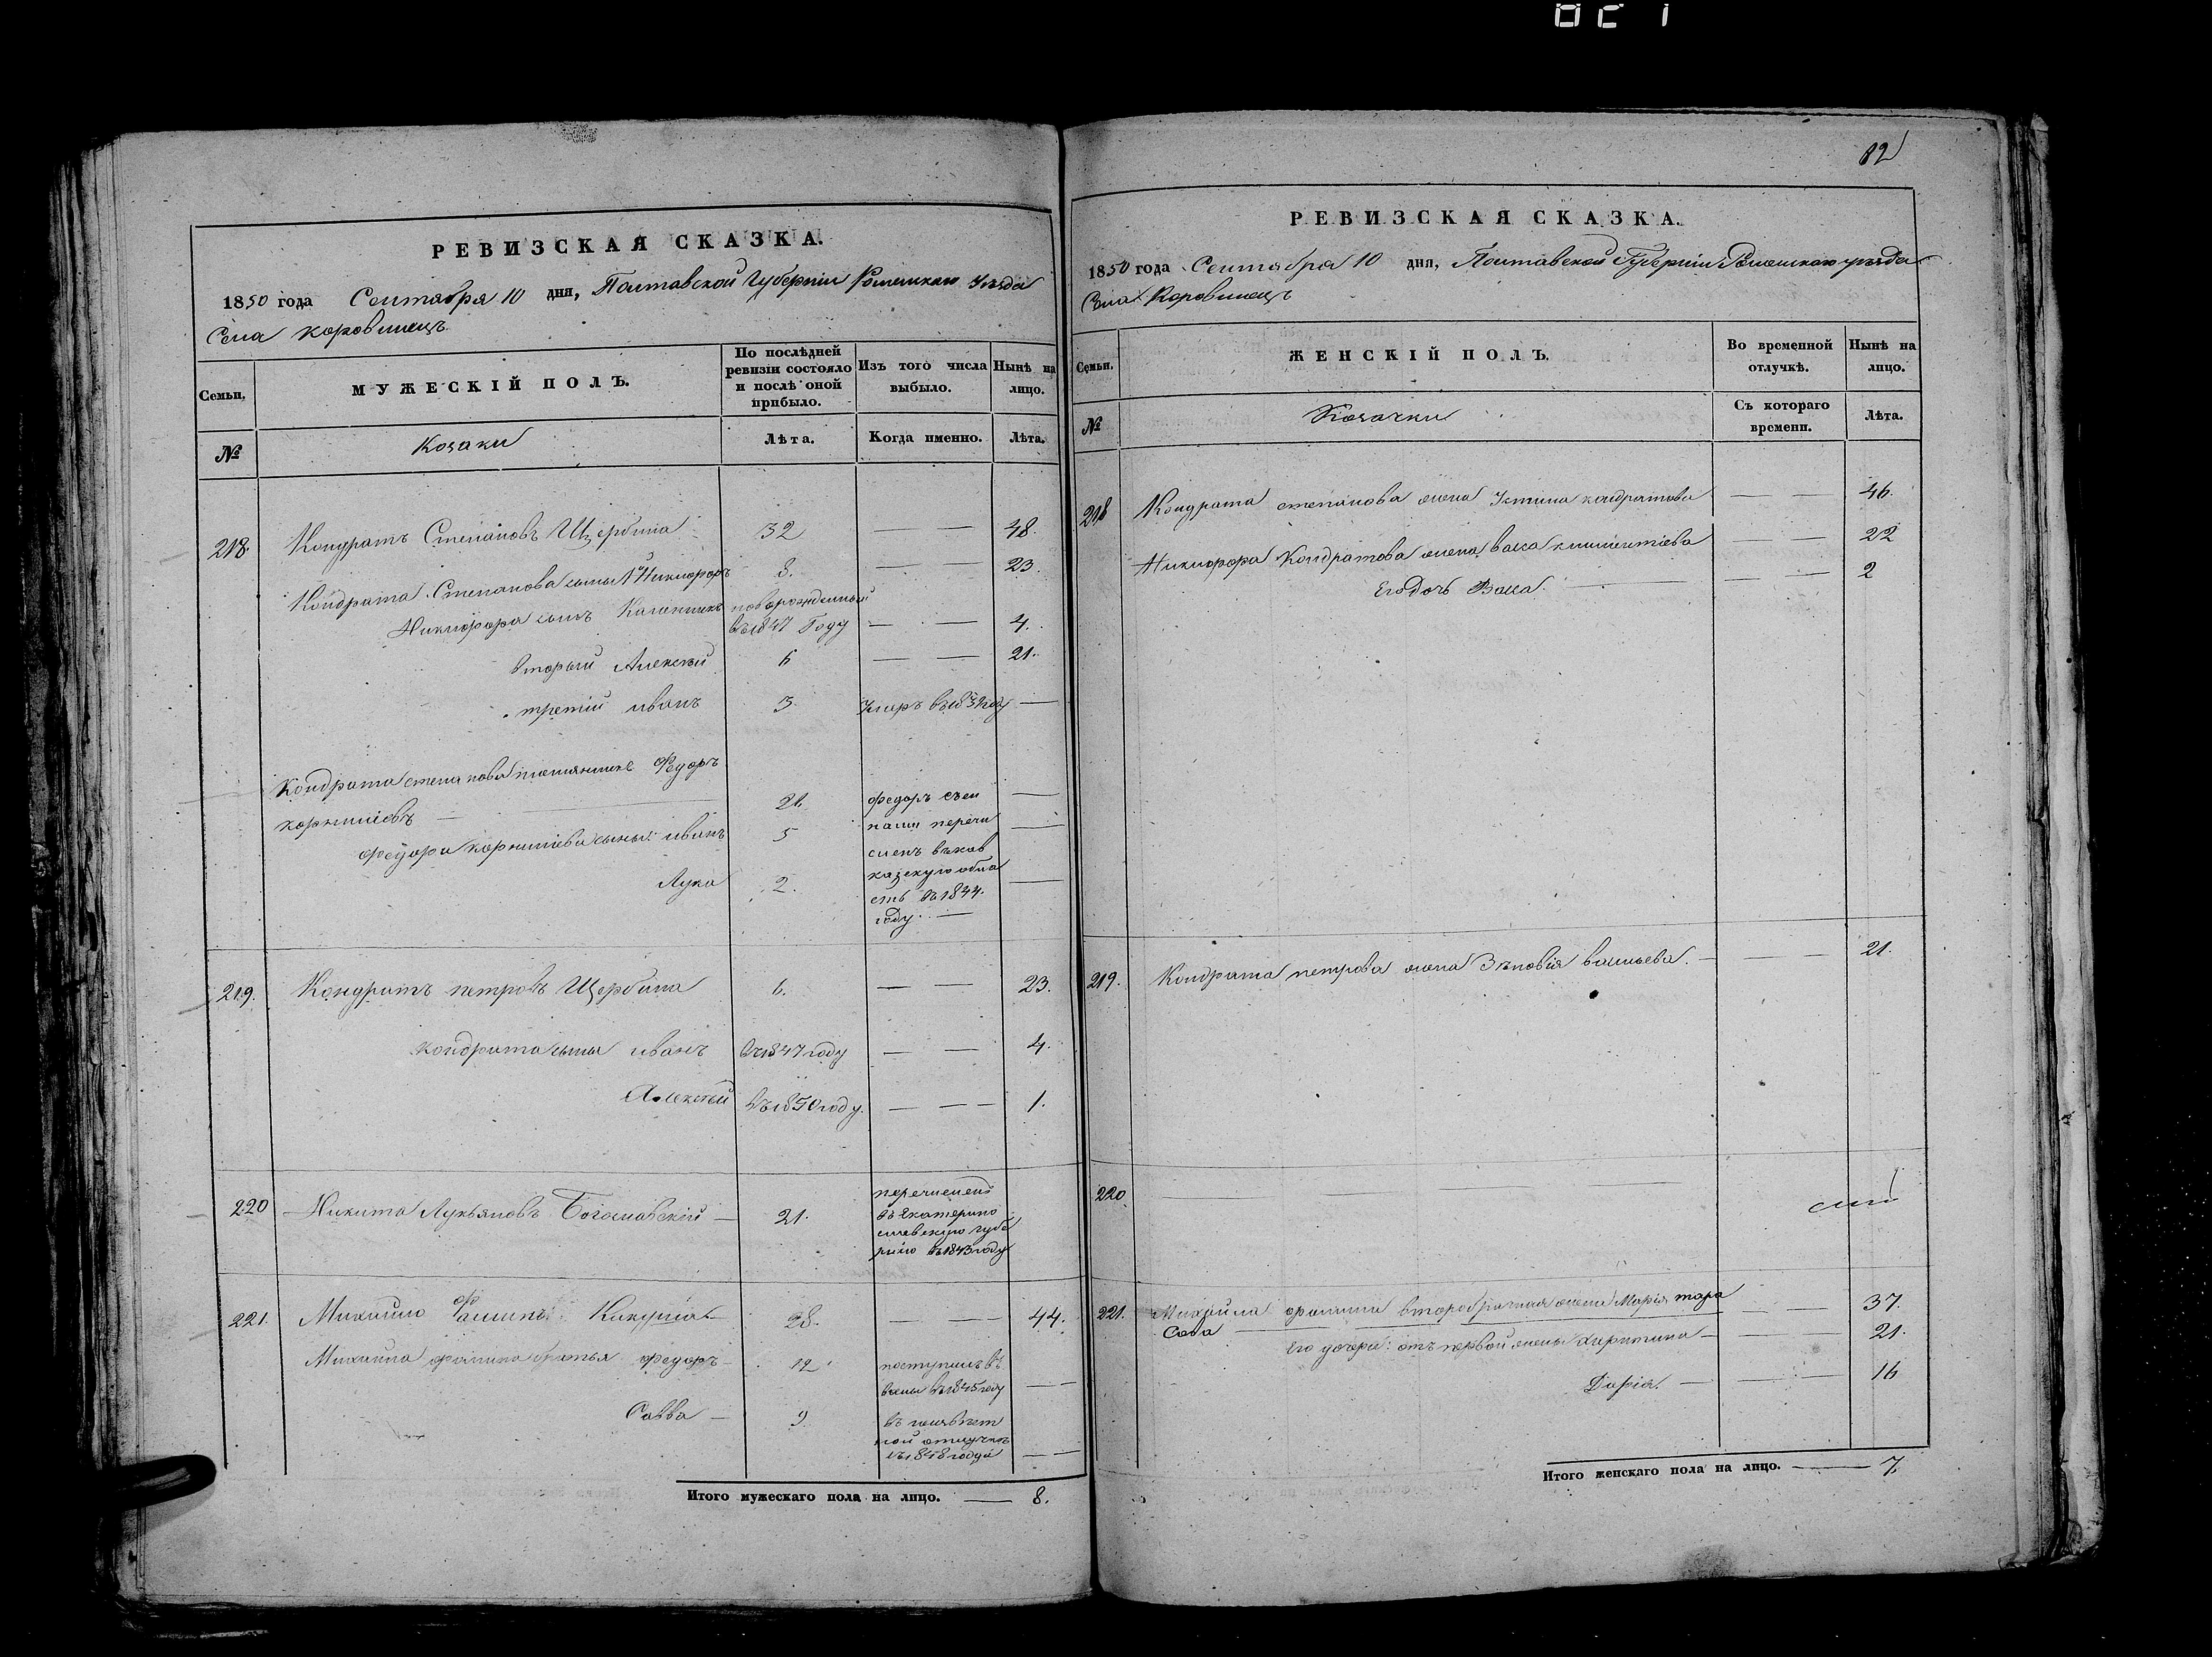 РЕВИЗСКАЯ СКАЗКА.
1850 года Сентября 10 дня, Полтавской Губерніи Роменскаго Уезда
Села Коровинецъ
Семьи.
МУЖЕСКІЙ ПОЛЪ.
По послѣдней ревизіи состояло и послѣ оной прибыло.
Изъ того числа выбыло.
Нынѣ на лицо.
№
Козаки
Лѣта.
Когда именно.
Лѣта.
218. Кондратъ Степановъ Щербина 32 — — 48.
Кондрата Степанова сыны 1й Никифоръ 8. — — 23.
Никифора сынъ новорожденный
въ 1847 Году — — 4.
вторый Алексей 6 — — 21.
третій иванъ 3. умеръ въ —
Кондрата степанова племянникъ Федоръ
корнилиевъ — 21. федоръ съ —
федора корнилиева сыны: иванъ 5 перечи —
сленъ въ кав
Лука 2. казскую обла —
сть въ 1844.
году. —
219. Кондратъ петровъ Щербина 6. — — 23.
кондрата сыны иванъ въ 1847 году — — 4.
Алексей въ 1850 году. — — 1.
220 Никита Лукьяновъ Богославскій — 21. перечисленъ
въ Екатерино
славскую губе
рнію въ 1843 году
221. Михайло Фоминъ 28. — — 44.
Михайла фомина братья федоръ — 12 поступилъ въ
въ 1845 году —
Савва — 9 въ безъизвест
ной отлучке
съ 1848 года —
Итого мужескаго пола на лицо. — 8.
82
РЕВИЗСКАЯ СКАЗКА.
1850 года Сентября 10 дня, Полтавской Губерніи Роменскаго уезда
Села Коровинецъ
Семьи.
ЖЕНСКІЙ ПОЛЪ.
Во временной отлучкѣ.
Нынѣ на лицо.
№
Козачки
Съ котораго времени.
Лѣта.
218 Кондрата степанова жена Устина кондратова — — 46.
Никифора Кондратова жена васса климентіева — — 22
Его Дочь Васса. — — 2
219. Кондрата петрова жена Зѣновія васильева. — — — 21.
220
221. Михайла фомина второбрачная жена Марія тара
сова — — 37.
Его дочери: отъ первой жены Харитина — — — 21.
Дарія. — — — 16
Итого женскаго пола на лицо. — 7.